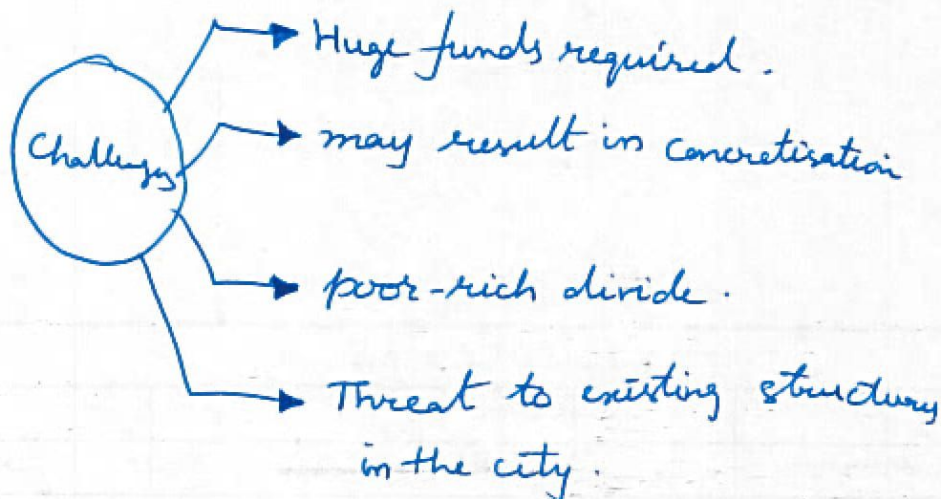 Huge funds required.
Challenges
may result in concretisation
poor-rich divide.
Threat to existing structures
in the city.